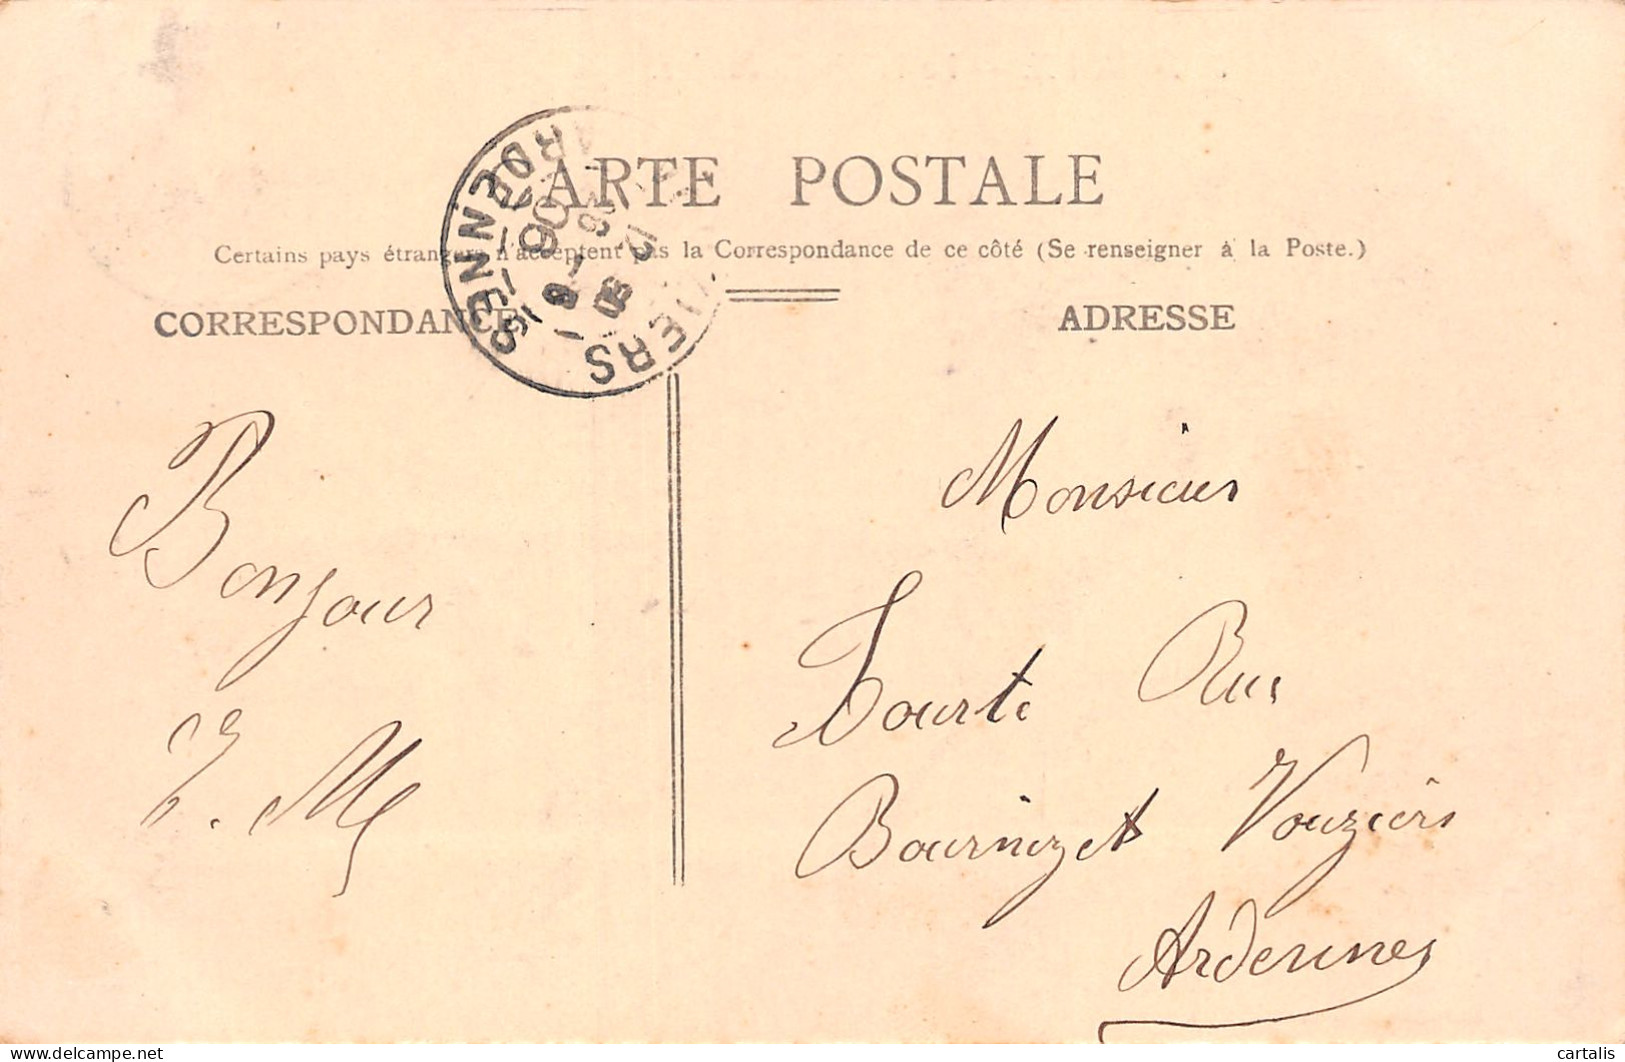 CARTE POSTALE
Certains pays étrangers n'acceptent pas la Correspondance de ce côté (Se renseigner à la Poste.)
CORRESPONDANCE
ADRESSE
ARDENNES
VOUZIERS
Bonjour
Monsieur
Tourte Rue
Bournizet Vouziers
Ardennes
delcampe.net
cartalis